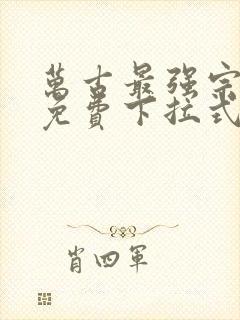 萬古最强宗
免費下拉式
肖四軍